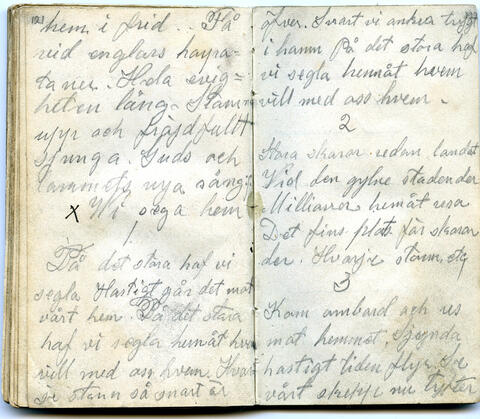 121
hem i frid.. Få
vid englars harpa-
toner. Hela evig-
heten lång. Stäm
upp och fröjdfullt
sjunga. Guds och
lammets nya sång.
x Vi sega hem
1
På det stora haf vi
segla Hastigt går det mot
vårt hem. På det stora
haf vi segla hemåt hvem
vill med oss hvem. Hvar
je stam så snart är
öfver. Snart vi ankra tryggt
i hamn På det stora haf
vi segla hemåt hvem
vill med oss hvem.
2
Stora skaror redan landat
Vid den gylne staden der
Millioner hemåt resa
Det fins plats för skaror
der. Hvarje stam, etc
3
Kom ombord och res
mot hemmet. Skynda
hastigt tiden flyr. Se
vårt skepp nu lyfter